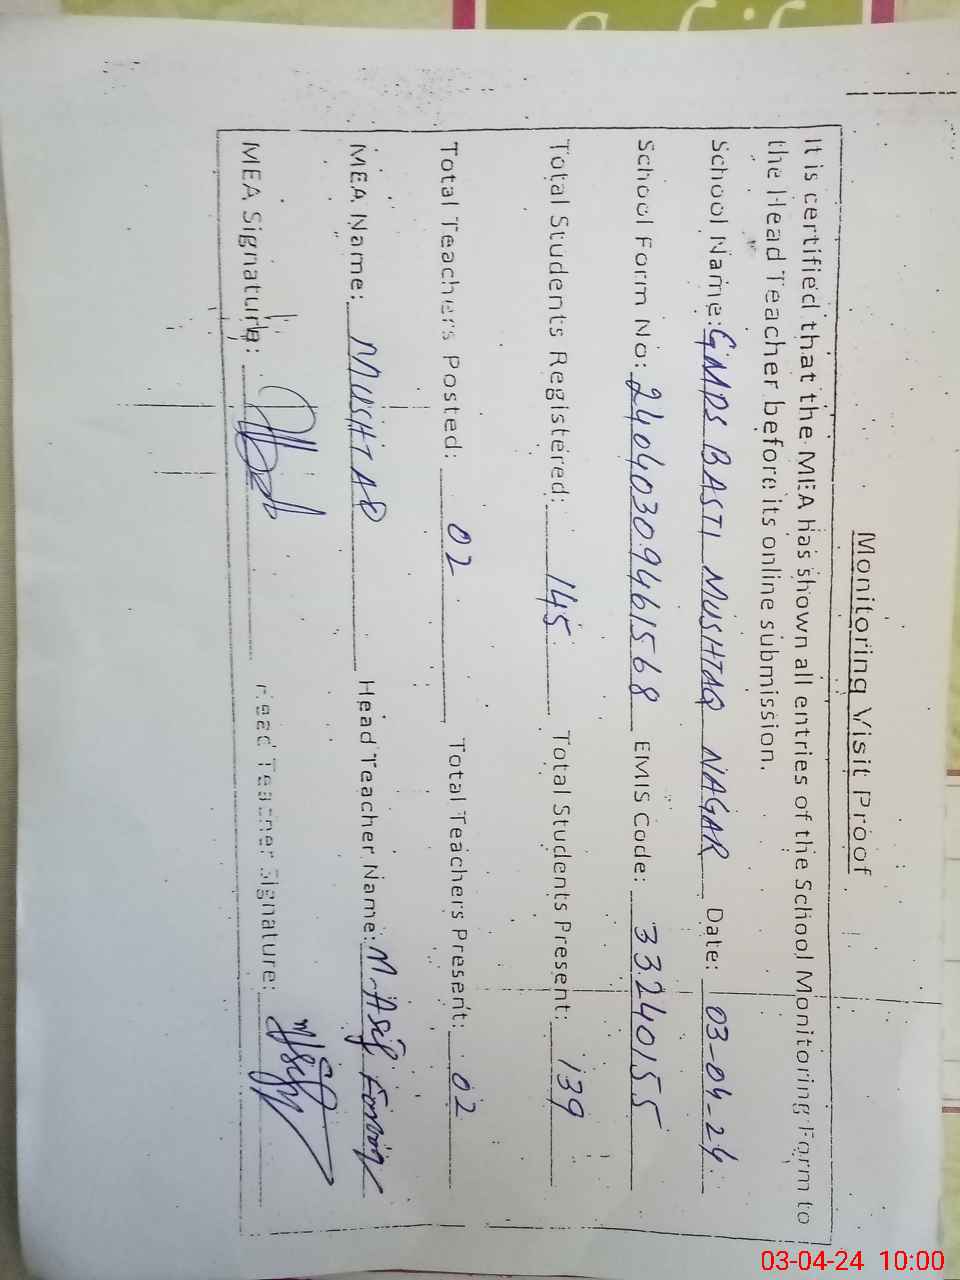 Monitoring Visit Proof
It is certified that the MEA has shown all entries of the School Monitoring Form to
the Head Teacher before its online submission.
School Name: GMPS BASTI MUSHTAQ NAGAR Date: 03-04-24
School Form No: 24040309461568 EMIS Code: 33240155
Total Students Registered: 145 Total Students Present: 139
Total Teachers Posted: 02 Total Teachers Present: 02
MEA Name: MUSHTAQ Head Teacher Name: M. Asif
MEA Signature: Head Teacher Signature:
03-04-24 10:00